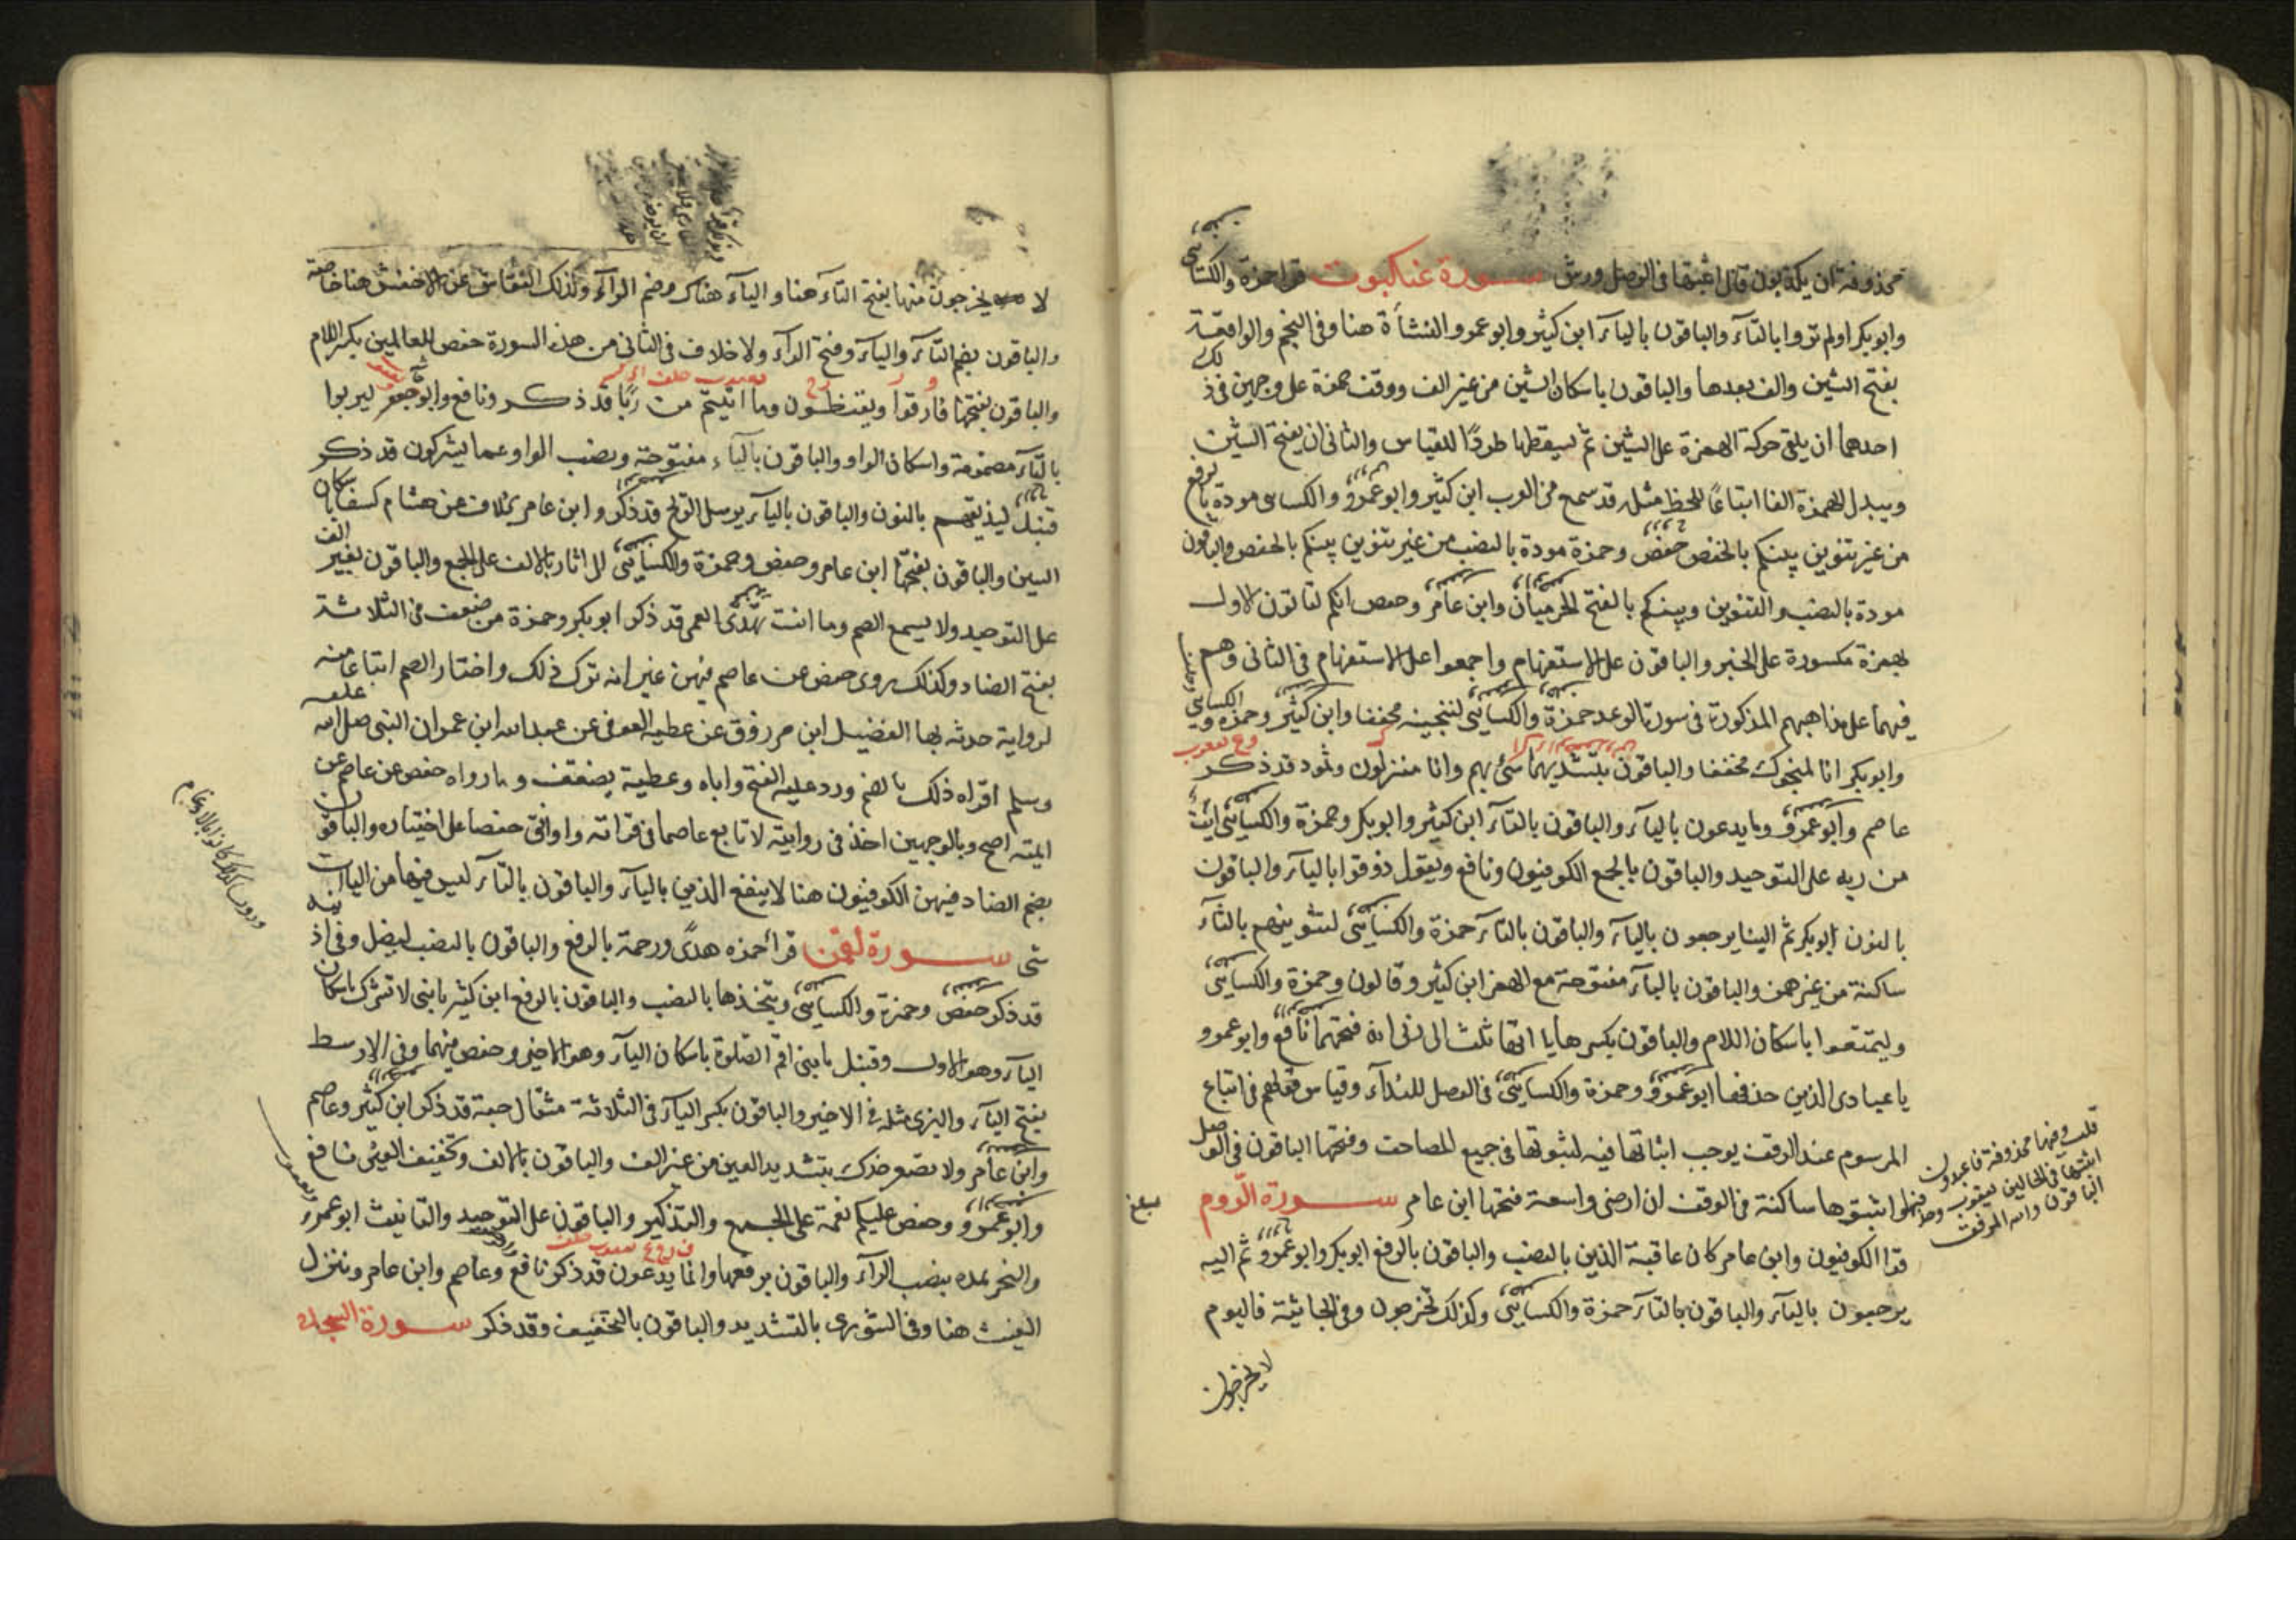 محذوفة ان يكذبون قال اثبتها فى الوصل ورش سورة عنكبوت قرا حمزة والكسائى
وابو بكر اولم تروا بالتآء والباقون باليآء ابن كثير وابو عمرو النشأة هنا وفى النجم والواقعة
بفتح الشين والف بعدها والباقون باسكان الشين من غير الف ووقف حمزة على وجهين فى ذلك
احدهما ان يلقى حركة الهمزة على الشين ثم يسقطها طردًا للقياس والثانى ان يفتح الشين
ويبدل الهمزة الفا اتباعًا للخط مثله قد سمع من العرب ابن كثير وابو عمرو والكسائى مودة بالرفع
من غير تنوين بينكم بالخفض حفص وحمزة مودة بالنصب من غير تنوين بينكم بالخفض والباقون
مودة بالنصب والتنوين وبينكم بالفتح الحرميان وابن عامر وحفص انكم لتاتون الاول
بهمزة مكسورة على الخبر والباقون على الاستفهام واجمعوا على الاستفهام فى الثانى وهم
فيهما على مذاهبهم المذكورة فى سورة الرعد حمزة والكسائى لننجينه مخففا وابن كثير وحمزة والكسائى
وابو بكر انا منجوك مخففا والباقون بتشديهما سئ بهم وانا منزلون وثمود قد ذكر
عاصم وابو عمرو وما يدعون باليآء والباقون بالتآء ابن كثير وابو بكر وحمزة والكسائى ايت
من ربه على التوحيد والباقون بالجمع الكوفيون ونافع ويقول ذوقوا باليآء والباقون
بالنون ابو بكر ثم الينا يرجعون باليآء والباقون بالتآء حمزة والكسائى لنثوينهم بالثآء
ساكنة من غير همز والباقون بالبآء مفتوحة مع الهمز ابن كثير وقالون وحمزة والكسائى
وليتمتعوا باسكان اللام والباقون بكسرها يا اتها ثلث الى ربى انه فتحهما نافع وابو عمرو
يا عبادى الذين حذفها ابو عمرو وحمزة والكسائى فى الوصل للندآء وقياس قولهم فى اتباع
المرسوم عند الوقف يوجب اثباتها فيه لثبوتها فى جميع المصاحف وفتحها الباقون فى الوصل
واثبتوها ساكنة فى الوقف ان ارضى واسعة فتحها ابن عامر سورة الروم
قرا الكوفيون وابن عامر كان عاقبة الذين بالنصب والباقون بالرفع ابو بكر وابو عمرو ثم اليه
يرجعون باليآء والباقون بالتآء حمزة والكسائى وكذلك تخرجون وفى الجاثية فاليوم
لا يخرجون
قلت وفيها محذوفة فاعبدون
اثبتها فى الحالين يعقوب وحذفها
الباقون والله الموفق
لا يخرجون منها بفتح التآء هنا واليآء هناك وضم الرآء وكذلك النقاش عن الاخفش هنا خاصة
والباقون بضم التآء واليآء وفتح الرآء ولا خلاف فى الثانى من هذه السورة حفص للعالمين بكسر اللام
والباقون بفتحها فارقوا ويقنطون وما اتيتم من ربا قد ذكر ونافع وابو جعفر ليربوا
بالتآء مضمومة واسكان الواو والباقون باليآء مفتوحة وبنصب الواو عما يشركون قد ذكر
قنبل ليذيقهم بالنون والباقون باليآء يرسل الريح قد ذكر وابن عامر بخلاف عن هشام كسفا باسكان
السين والباقون بفتحها ابن عامر وحفص وحمزة والكسائى الى اثار بالالف على الجمع والباقون بغير الف
على التوحيد ولا يسمع الصم وما انت تهدى العمى قد ذكر ابو بكر وحمزة من ضعف فى الثلاثة
بفتح الضاد وكذلك روى حفص عن عاصم فيهن غير انه ترك ذلك واختار الضم اتباعا منه
لرواية حدثه بها الفضيل ابن مرزوق عن عطية العوفى عن عبد الله ابن عمر ان النبى صلى الله عليه
وسلم اقراه ذلك بالضم ورد عليه الفتح واباه وعطية يضعف وما رواه حفص عن عاصم عن
ايمته اصح وبالوجهين اخذ فى روايته لاتابع عاصما فى قراته واوافق حفصا على اختياره والباقون
بضم الضاد فيهن الكوفيون هنا لا ينفع الذين باليآء والباقون بالتآء ليس فيها من اليات
شى سورة لقمن قرا حمزه هدًى ورحمة بالرفع والباقون بالنصب ليضل وفى اذنيه
قد ذكر حفص وحمزة والكسائى ويتخذها بالنصب والباقون بالرفع ابن كثير يا بنى لا تشرك باسكان
اليآء وهو الاول وقنبل يا بنى اقم الصلوة باسكان اليآء وهو الاخير وحفص فيهما وفى الاوسط
بفتح اليآء والبزى مثله فى الاخير والباقون بكسر اليآء فى الثلاثة مثقال حبة قد ذكر ابن كثير وعاصم
وابن عامر ولا تصعر خدك بتشديد العين من غير الف والباقون بالالف وتخفيف العين نافع
وابو عمرو وحفص عليكم نعمة على الجمع والتذكير والباقون على التوحيد والتانيث ابو عمرو
والبحر يمده بنصب الرآء والباقون برفعها وانما يدعون قد ذكر نافع وعاصم وابن عامر وينزل
الغيث هنا وفى الشورى بالتشديد والباقون بالتخفيف وقد ذكر سورة السجدة